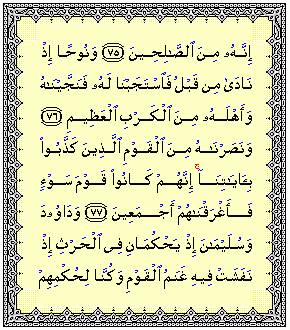 إِنَّهُۥ مِنَ ٱلصَّٰلِحِينَ ﴿٧٥﴾ وَنُوحًا إِذْ
نَادَىٰ مِن قَبْلُ فَٱسْتَجَبْنَا لَهُۥ فَنَجَّيْنَٰهُ
وَأَهْلَهُۥ مِنَ ٱلْكَرْبِ ٱلْعَظِيمِ ﴿٧٦﴾
وَنَصَرْنَٰهُ مِنَ ٱلْقَوْمِ ٱلَّذِينَ كَذَّبُوا۟
بِـَٔايَٰتِنَآ ۚ إِنَّهُمْ كَانُوا۟ قَوْمَ سَوْءٍ
فَأَغْرَقْنَٰهُمْ أَجْمَعِينَ ﴿٧٧﴾ وَدَاوُۥدَ
وَسُلَيْمَٰنَ إِذْ يَحْكُمَانِ فِى ٱلْحَرْثِ إِذْ
نَفَشَتْ فِيهِ غَنَمُ ٱلْقَوْمِ وَكُنَّا لِحُكْمِهِمْ